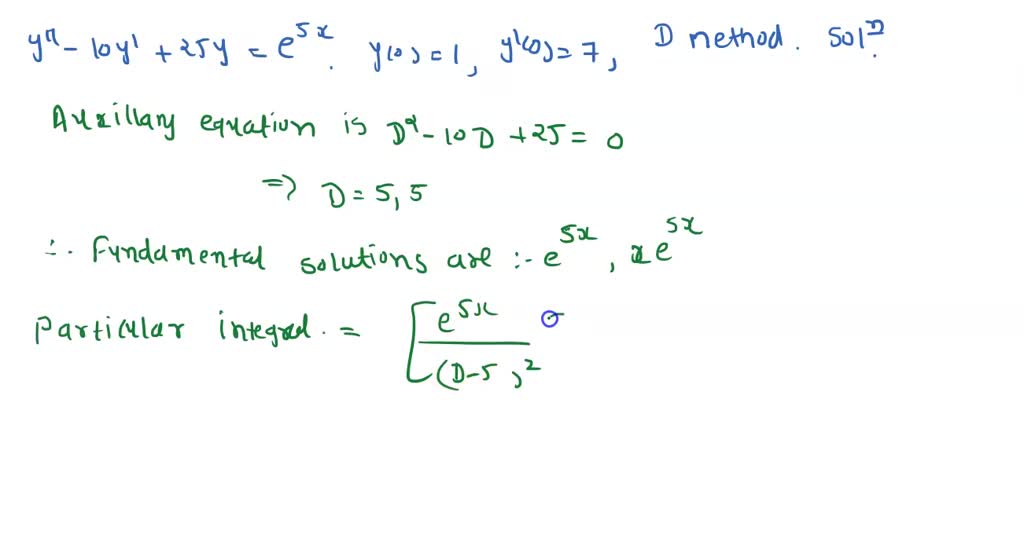 y" - 10y' + 25y = e^5x. y(0) = 1, y'(0) = 7, D nethod. Sol^n?
Auxillary equation is D² - 10D + 25 = 0
=> D = 5, 5
∴ Fundamental solutions are :- e^5x, xe^5x
Particular integral. = [ e^5x / (D-5)^2